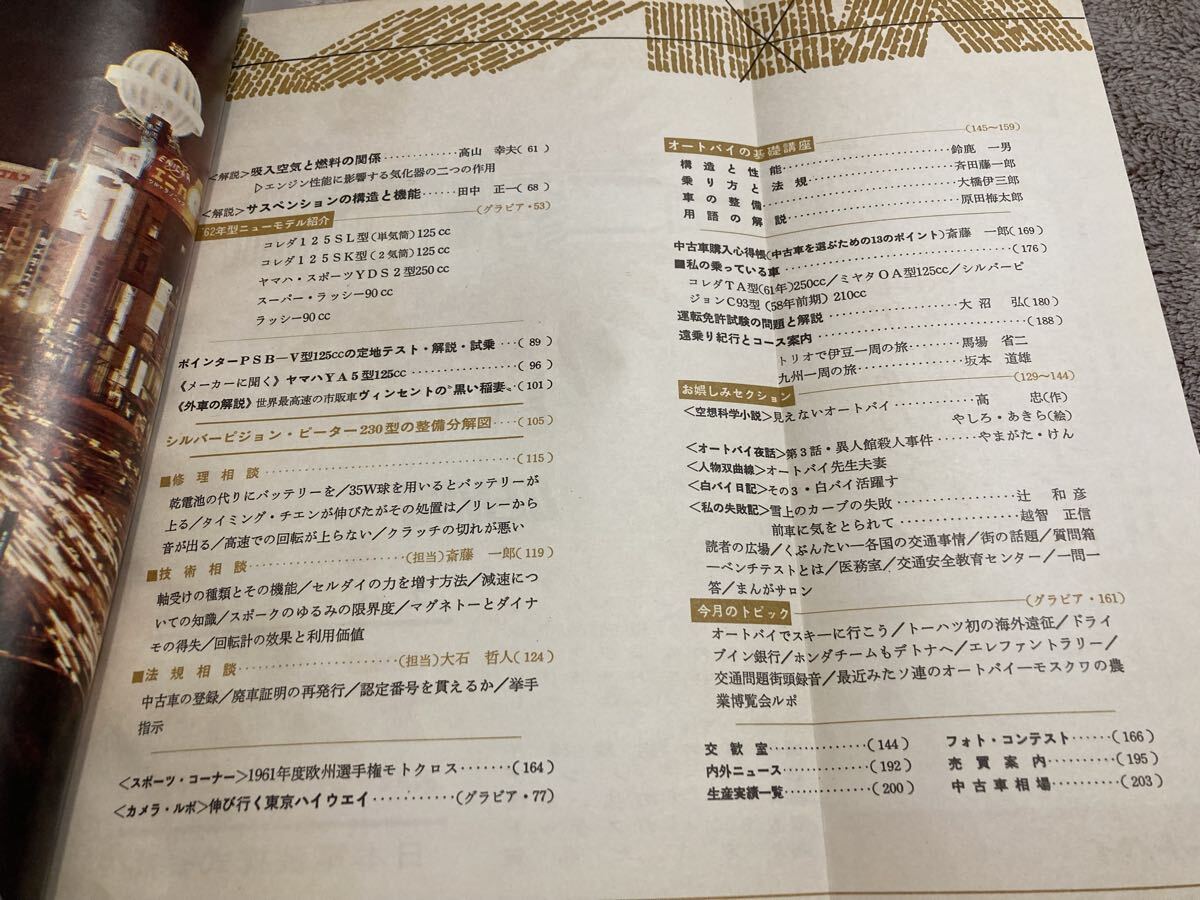 <解説>吸入空気と燃料の関係…………高山 幸夫(61)
▷エンジン性能に影響する気化器の二つの作用
<解説>サスペンションの構造と機能……田中 正一(68)
'62年型ニューモデル紹介 (グラビア・53)
コレダ125SL型(単気筒)125cc
コレダ125SK型(2気筒)125cc
ヤマハ・スポーツYDS2型250cc
スーパー・ラッシー90cc
ラッシー90cc
ポインターPSB—V型125ccの定地テスト・解説・試乗…(89)
《メーカーに聞く》ヤマハYA5型125cc……………(96)
《外車の解説》世界最高速の市販車ヴィンセントの〝黒い稲妻〟(101)
シルバーピジョン・ピーター230型の整備分解図……(105)
■修理相談……………(115)
乾電池の代りにバッテリーを/35W球を用いるとバッテリーが
上る/タイミング・チエンが伸びたがその処置は/リレーから
音が出る/高速での回転が上らない/クラッチの切れが悪い
■技術相談……………(担当)斎藤 一郎(119)
軸受けの種類とその機能/セルダイの力を増す方法/減速につ
いての知識/スポークのゆるみの限界度/マグネトーとダイナ
モの得失/回転計の効果と利用価値
■法規相談……………(担当)大石 哲人(124)
中古車の登録/廃車証明の再発行/認定番号を貰えるか/挙手
指示
<スポーツ・コーナー>1961年度欧州選手権モトクロス……(164)
<カメラ・ルポ>伸び行く東京ハイウエイ…………(グラビア・77)
オートバイの基礎講座 (145〜159)
構造と性能……………鈴鹿 一男
乗り方と法規……………斉田藤一郎
車の整備……………大橋伊三郎
用語の解説……………原田梅太郎
中古車購入心得帳(中古車を選ぶための13のポイント)斎藤 一郎(169)
■私の乗っている車……………(176)
コレダTA型(61年)250cc/ミヤタOA型125cc/シルバーピ
ジョンC93型(58年前期)210cc
運転免許試験の問題と解説……………大沼 弘(180)
遠乗り紀行とコース案内……………(188)
トリオで伊豆一周の旅…………馬場 省二
九州一周の旅……………坂本 道雄
お娯しみセクション (129〜144)
<空想科学小説>見えないオートバイ…………高 忠(作)
やしろ・あきら(絵)
<オートバイ夜話>第3話・異人館殺人事件……やまがた・けん
<人物双曲線>オートバイ先生夫妻
<白バイ日記>その3・白バイ活躍す
<私の失敗記>雪上のカーブの失敗……………辻 和彦
前車に気をとられて……………越智 正信
読者の広場/くぶんたい—各国の交通事情/街の話題/質問箱
—ベンチテストとは/医務室/交通安全教育センター/一問一
答/まんがサロン
今月のトピック (グラビア・161)
オートバイでスキーに行こう/トーハツ初の海外遠征/ドライ
ブイン銀行/ホンダチームもデトナへ/エレファントラリー/
交通問題街頭録音/最近みたソ連のオートバイ—モスクワの農
業博覧会ルポ
交歓室……………(144)
内外ニュース…………(192)
生産実績一覧…………(200)
フォト・コンテスト……(166)
売買案内…………(195)
中古車相場…………(203)